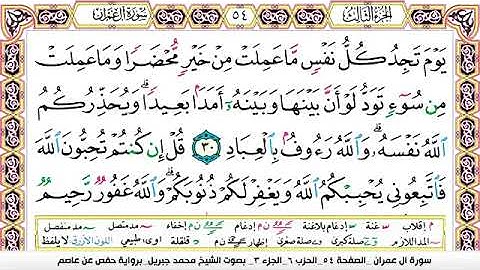 الجزء الثالث ٥٤ سورة آل عمران
يَوْمَ تَجِدُ كُلُّ نَفْسٍ مَّا عَمِلَتْ مِنْ خَيْرٍ مُّحْضَرًا وَمَا عَمِلَتْ
مِن سُوٓءٍ تَوَدُّ لَوْ أَنَّ بَيْنَهَا وَبَيْنَهُۥٓ أَمَدًۢا بَعِيدًا ۗ وَيُحَذِّرُكُمُ
ٱللَّهُ نَفْسَهُۥ ۗ وَٱللَّهُ رَءُوفٌۢ بِٱلْعِبَادِ ٣٠ قُلْ إِن كُنتُمْ تُحِبُّونَ ٱللَّهَ
فَٱتَّبِعُونِى يُحْبِبْكُمُ ٱللَّهُ وَيَغْفِرْ لَكُمْ ذُنُوبَكُمْ ۗ وَٱللَّهُ غَفُورٌ رَّحِيمٌ
م إقلاب غنة إدغام بلاغنة إدغام إخفاء مد متصل مد منفصل
المد اللازم صلة كبرى صلة صغرى إظهار قلقلة اوى طبيعي اللون الأزرق لا يلفظ
سورة ال عمران _ الصفحة ٥٤ _ الحزب ٦ _ الجزء ٣ _ بصوت الشيخ محمد جبريل _ برواية حفص عن عاصم